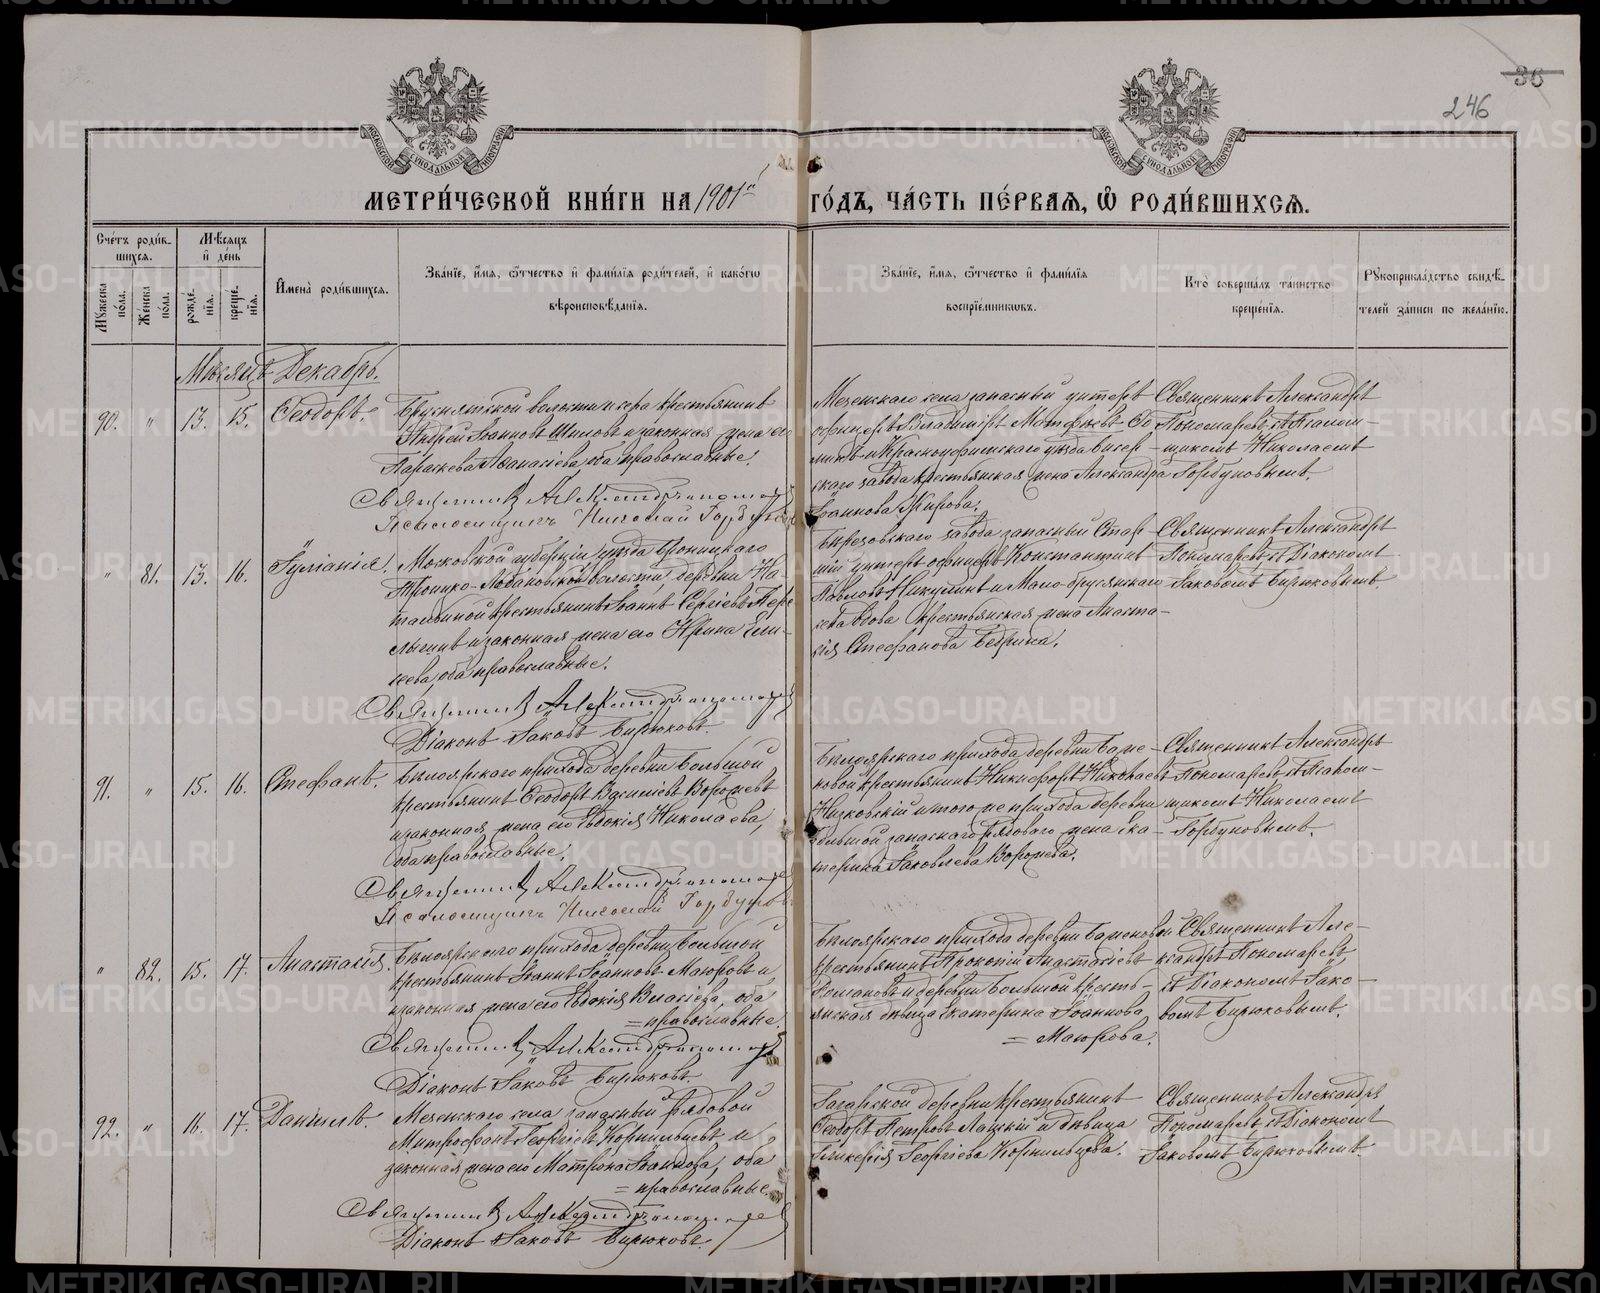 36
246
МЕТРИ́ЧЕСКОЙ КНИ́ГИ НА 1901й ГО́ДЪ, ЧА́СТЬ ПЕ́РВАѦ, Ѽ РОДИ́ВШИХСѦ.
Сче́тъ роди́в-
шихсѧ.
Мѣ́сѧцъ
и҆ де́нь
Мꙋ́жеска
по́ла.
Же́нска
по́ла.
рожде́-
нїѧ.
креще́-
нїѧ.
И҆мена̀ роди́вшихсѧ.
Зва́нїе, и҆́мѧ, ѻ҆́тчество и҆ фами́лїѧ роди́телей, и҆ како́гѡ
вѣроисповѣ́данїѧ.
Зва́нїе, и҆́мѧ, ѻ҆́тчество и҆ фами́лїѧ
воспрїе́мникѡвъ.
Кто̀ соверша́лъ та́инство
креще́нїѧ.
Рꙋкоприкла́дство свидѣ́-
телей за́писи по жела́нїю.
Мѣсяцъ Декабрь.
90. " 13. 15. Ѳеодоръ.
Бруснятской волости и села крестьянинъ
Андрей Іоанновъ Шиловъ и законная жена его
Параскева Аѳанасіева, оба православные.
Священникъ Александръ Пономаревъ
Псаломщикъ Николай Горбуновъ
Мезенскаго села запасный унтеръ
офицеръ Владиміръ Матѳіевъ
и Красноуфимскаго уѣзда
скаго завода крестьянская жена Александра
Іоаннова Жирова.
Священникъ Александръ
Пономаревъ съ Псалом-
щикомъ Николаемъ
Горбуновымъ.
" 81. 13. 16. Іуліанія.
Московской губерніи уѣзда Бронницкаго
Троицко-Лобановской волости деревни
крестьянинъ Іоаннъ Сергіевъ
и законная жена его Ирина Ели-
сеева, оба православные.
Священникъ Александръ Пономаревъ
Діаконъ Іаковъ Бирюковъ.
Березовскаго завода запасный Стар-
шій унтеръ офицеръ Константинъ
Павловъ Никулинъ и Мало-брусянскаго
села вдова крестьянская жена Анаста-
сія Стефанова
Священникъ Александръ
Пономаревъ съ Діакономъ
Іаковомъ Бирюковымъ.
91. " 15. 16. Стефанъ.
Бѣлоярскаго прихода деревни Большой
крестьянинъ Ѳеодоръ Василіевъ Ворожевъ
и законная жена его Евдокія Николаева,
оба православные.
Священникъ Александръ Пономаревъ
Псаломщикъ Николай Горбуновъ
Бѣлоярскаго прихода деревни Баже-
новой крестьянинъ Никифоръ Николаевъ
Низковскій и того же прихода деревни
Большой запаснаго рядоваго жена Ека-
терина Іаковлева Ворожева.
Священникъ Александръ
Пономаревъ съ Псалом-
щикомъ Николаемъ
Горбуновымъ.
" 82. 15. 17. Анастасія.
Бѣлоярскаго прихода деревни Большой
крестьянинъ Іоаннъ Іоанновъ Маюровъ и
законная жена его Евдокія Власіева, оба
= православные.
Священникъ Александръ Пономаревъ
Діаконъ Іаковъ Бирюковъ.
Бѣлоярскаго прихода деревни Баженовой
крестьянинъ Прокопій Анастасіевъ
Романовъ и деревни Большой кресть-
янская дѣвица Екатерина Іоаннова
= Маюрова.
Священникъ Але-
ксандръ Пономаревъ
съ Діакономъ Іако-
вомъ Бирюковымъ.
92. " 16. 17. Даніилъ.
Мезенскаго села запасный рядовой
Митрофанъ Георгіевъ Корнильцевъ и
законная жена его Матрона Іоаннова, оба
= православные.
Священникъ Александръ Пономаревъ
Діаконъ Іаковъ Бирюковъ.
Гагарской деревни крестьянинъ
Ѳеодоръ Петровъ и дѣвица
Гликерія Георгіева Корнильцева.
Священникъ Александръ
Пономаревъ съ Діакономъ
Іаковомъ Бирюковымъ.
METRIKI.GASO-URAL.RU